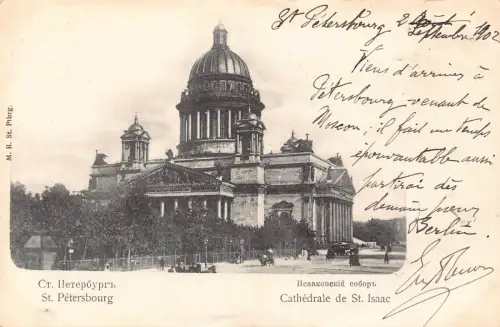 St Pétersbourg 2
Septembre 1902
Viens d'arriver à
Pétersbourg venant de
Moscou, il fait un temps
épouvantable aussi
partirai dès
demain pour
Berlin
M. B. St. Ptbrg.
Ст. Петербургъ
St. Pétersbourg
Исаковскій соборъ
Cathédrale de St. Isaac